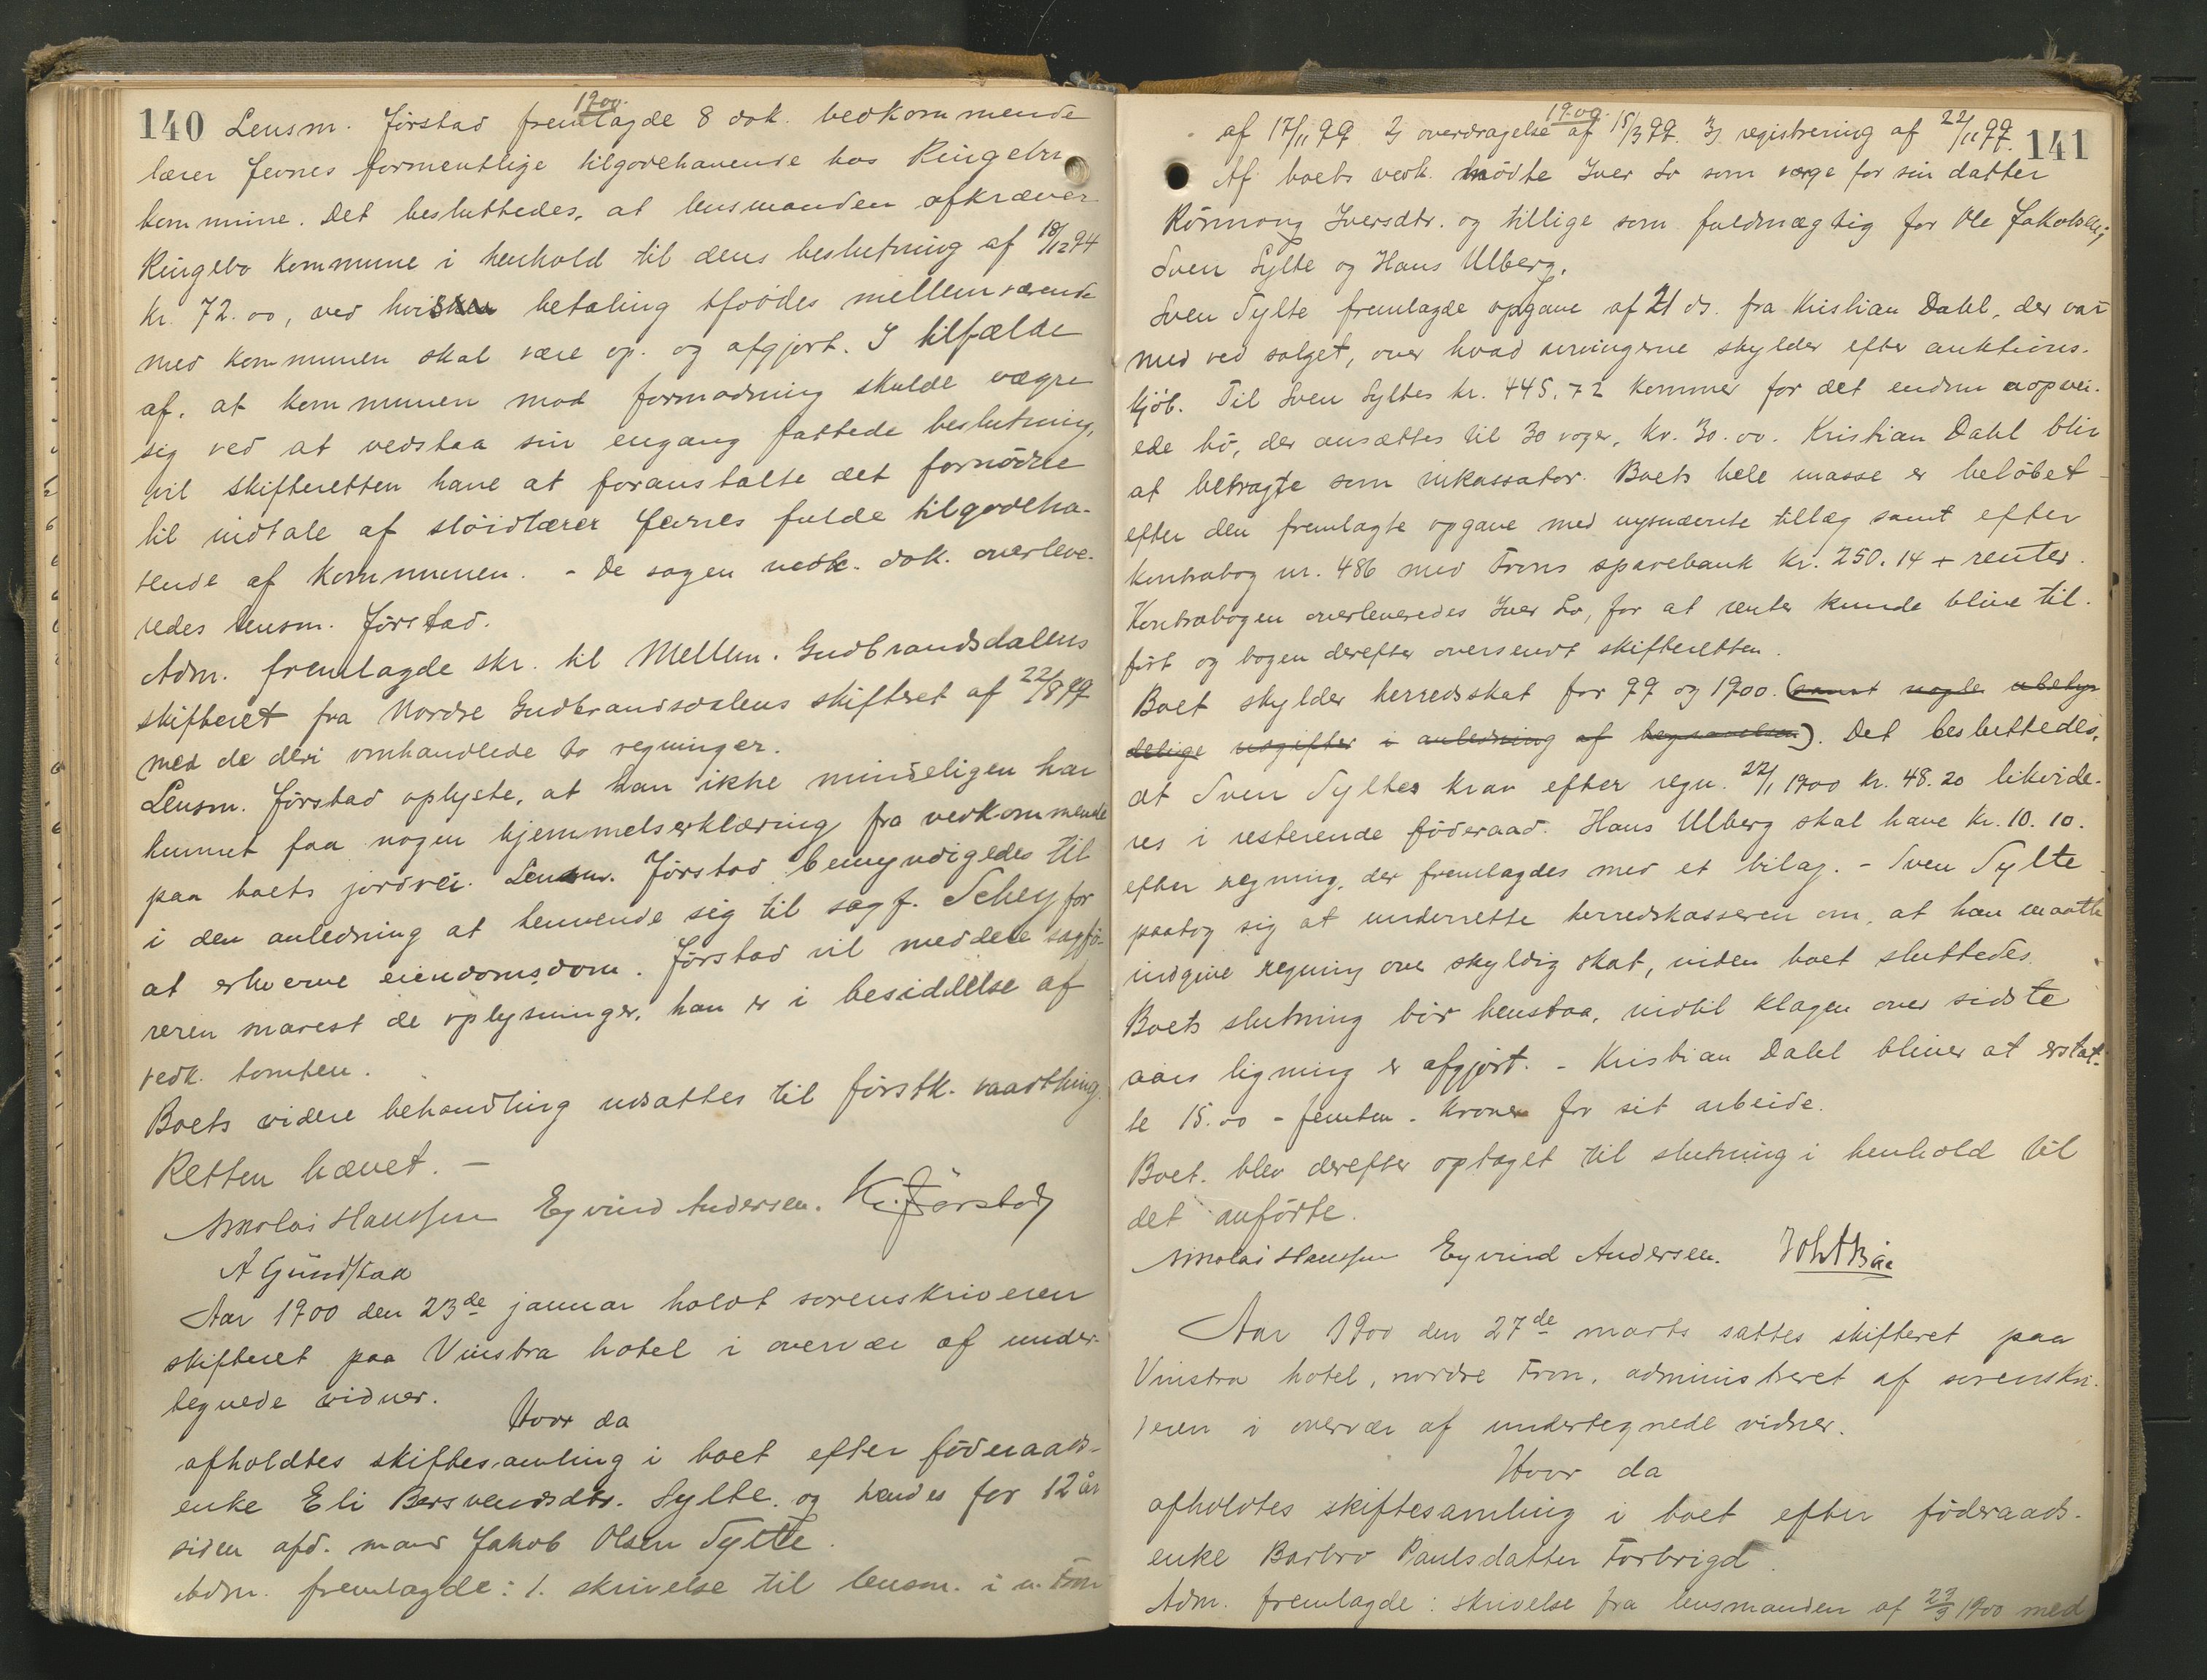 1900.
140 Lensm. Jørstad fremlagde 8 dok. vedkommende
lærer Jevnes formentlige tilgodehavende hos Ringebu
kommune. Det besluttedes, at lensmanden afkræver
Ringebo kommune i henhold til dens beslutning af 18/12 94
kr. 72.00, ved hvis betaling sføodes mellemværende
med kommunen skal være op- og afgjort. I tilfælde
af, at kommunen mod formodning skulde vægre
sig ved at vedstaa sin engang fattede beslutning,
vil skifteretten have at foranstalte det fornødne
til indtale af sløidlærer Jevnes fulde tilgodeha-
vende af kommunen. - De sagen vedk. dok. overleve-
redes lensm. Jørstad.
Adm. fremlagde skr. til Mellem-Gudbrandsdalens
skifteret fra Nordre Gudbrandsdalens skifteret af 22/8 99
med de deri omhandlede to regninger.
Lensm. Jørstad oplyste, at han ikke mindeligen har
kunnet faa nogen hjemmelserklæring fra vedkommende
paa boets jordvei. Lensm. Jørstad bemyndigedes til
i den anledning at henvende sig til sagf. Schey for
at erhverve eiendomsdom. Jørstad vil meddele sagfø-
reren snarest de oplysninger, han er i besiddelse af
vedk. tomten.
Boets videre behandling udsattes til førstk. vaarthing.
Retten hævet. -
Nikolai Hanssen Eyvind Andersen. K. Jørstad
A Gundstad
Aar 1900 den 23de januar holdt sorenskriveren
skifteret paa Vinstra hotel i overvær af under-
tegnede vidner.
Hvor da
afholdtes skiftesamling i boet efter føderaads-
enke Eli Bersvendsdtr. Sylte og hendes for 12 år
siden afd. mand Jakob Olsen Sylte.
Adm. fremlagde: 1. skrivelse til lensm. i n. Fron
1900.
af 17/11 99 2) overdragelse af 15/3 99. 3) registrering af 22/11 99. 141
Af boets vedk. mødte Iver Lo som værge for sin datter
Rønnaug Iversdtr. og tillige som fuldmægtig for Ole Jakobsen,
Sven Sylte og Hans Ulberg.
Sven Sylte fremlagde opgave af 21 ds. fra Kristian Dahl, der var
med ved salget, over hvad arvingerne skylder efter auktions-
kjøb. Til Sven Syltes kr. 445.72 kommer for det endnu uopvei-
ede hø, der ansættes til 30 voger, kr. 30.00. Kristian Dahl blir
at betragte som inkassator. Boets hele masse er beløbet
efter den fremlagte opgave med nysnævnte tillæg samt efter
kontrabog nr. 486 med Frons sparebank kr. 250.14 + renter.
Kontrabogen overleveredes Iver Lo, for at renter kunde blive til-
ført og bogen derefter oversendt skifteretten.
Boet skylder herredsskat for 99 og 1900. (samt nogle ubetyde-
delige udgifter i anledning af begravelsen). Det besluttedes,
at Sven Syltes krav efter regn. 22/1 1900 kr. 48.20 likvide-
res i resterende føderaad. Hans Ulberg skal have kr. 10.10.
efter regning, der fremlagdes med et bilag. - Sven Sylte
paatog sig at underrette herredskassereren om, at han maatte
indgive regning over skyldig skat, inden boet sluttedes.
Boets slutning bør henstaa, indtil klagen over sidste
aars ligning er afgjort. - Kristian Dahl bliver at erstat-
te 15.00 - femten - kroner for sit arbeide.
Boet blev derefter optaget til slutning i henhold til
det anførte.
Nikolai Hanssen Eyvind Andersen.
Aar 1900 den 27de marts sattes skifteret paa
Vinstra hotel, nordre Fron, administreret af sorenskri-
veren i overvær af undertegnede vidner.
Hvor da
afholdtes skiftesamling i boet efter føderaads-
enke Barbro Paulsdatter Forbrigd.
Adm. fremlagde: skrivelse fra lensmanden af 22/3 1900 med